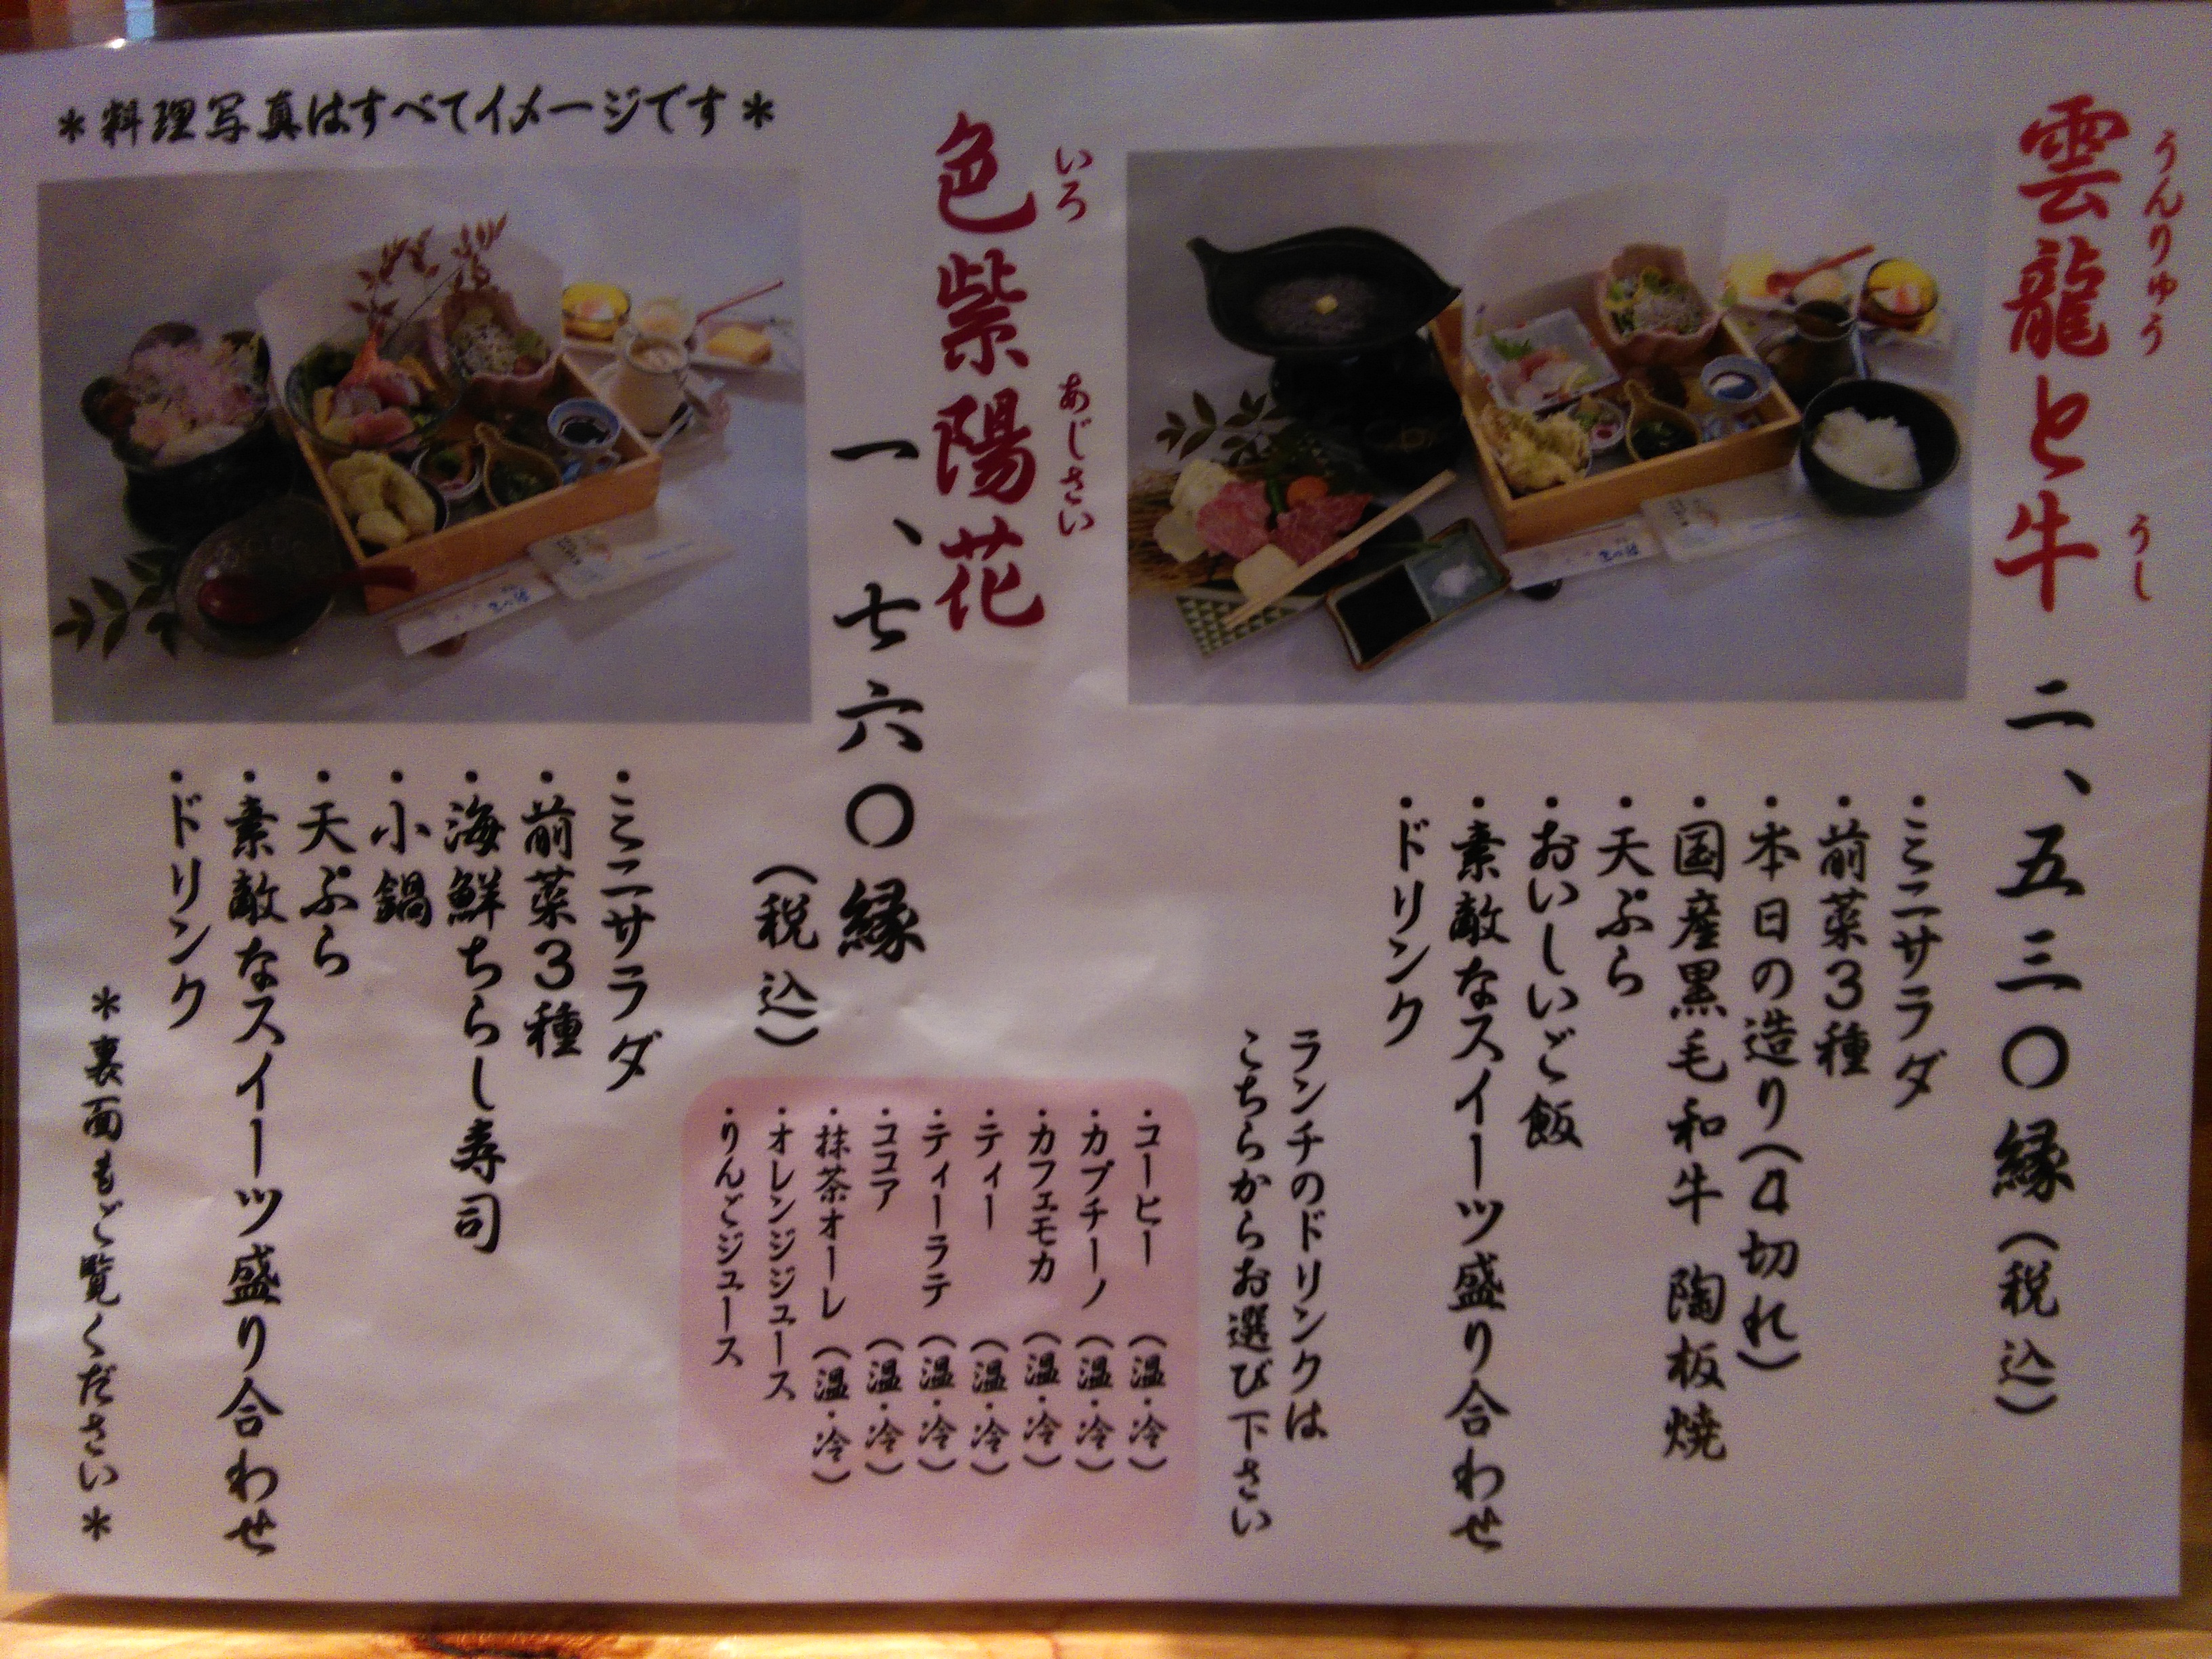 雲龍と牛 二、五三〇縁(税込)
うんりゅう うし
・ミニサラダ
・前菜3種
・本日の造り(4切れ)
・国産黒毛和牛 陶板焼
・天ぷら
・おいしいご飯
・素敵なスイーツ盛り合わせ
・ドリンク
ランチのドリンクは
こちらからお選び下さい
・コーヒー (温・冷)
・カプチーノ (温・冷)
・カフェモカ (温・冷)
・ティー (温・冷)
・ティーラテ (温・冷)
・ココア (温・冷)
・抹茶オーレ (温・冷)
・オレンジジュース
・りんごジュース
色紫陽花
いろ あじさい
一、七六〇縁
(税込)
・ミニサラダ
・前菜3種
・海鮮ちらし寿司
・小鍋
・天ぷら
・素敵なスイーツ盛り合わせ
・ドリンク
*料理写真はすべてイメージです*
*裏面もご覧ください*